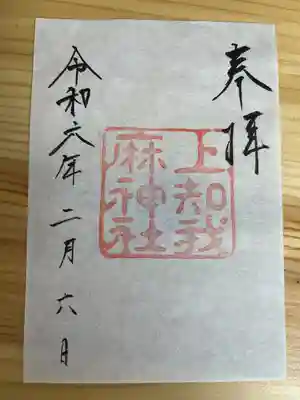 奉拝
上知我
麻神社
令和六年二月六日